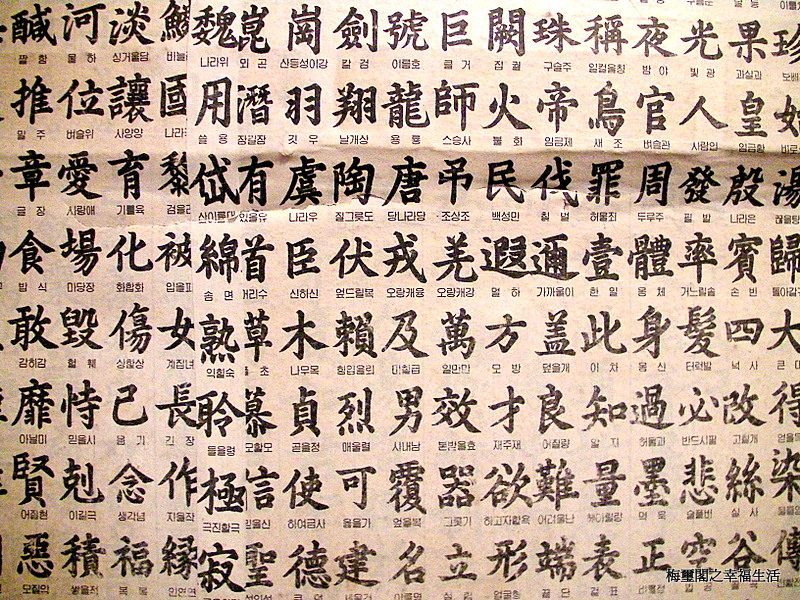 鹹 河 淡 鱗 魏 崑 崗 劍 號 巨 闕 珠 稱 夜 光 果 珍
짤 함 물 하 싱거울담 나라위 뫼 곤 산등성이강 칼 검 이름호 클 거 집 궐 구슬주 일컬을칭 밤 야 빛 광 과실과
推 位 讓 國 用 潛 羽 翔 龍 師 火 帝 鳥 官 人 皇 始
벼슬위 사양양 쓸 용 잠길잠 깃 우 날개상 용 룡 스승사 불 화 임금제 새 조 벼슬관 사람인 임금황
章 愛 育 黎 岱 有 虞 陶 唐 弔 民 伐 罪 周 發 殷 湯
글 장 사랑애 기를육 있을유 나라우 질그릇도 당나라당 조상조 백성민 칠 벌 허물죄 두루주 필 발 나라은
食 場 化 被 綿 首 臣 伏 戎 羌 遐 邇 壹 體 率 賓 歸
밥 식 마당장 화할화 솜 면 머리수 신하신 엎드릴복 오랑캐융 오랑캐강 멀 하 가까울이 한 일 몸 체 거느릴솔 손 빈
敢 毀 傷 女 熟 草 木 賴 及 萬 方 盖 此 身 髮 四 大
감히감 헐 훼 상할상 계집녀 익힐숙 풀 초 나무목 힘입을뢰 미칠급 일만만 모 방 덮을개 이 차 몸 신 터럭발 넉 사
靡 恃 己 長 聆 慕 貞 烈 男 效 才 良 知 過 必 改 得
아닐미 믿을시 몸 기 긴 장 들을령 사모할모 곧을정 매울렬 사내남 본받을효 재주재 어질량 알 지 허물과 반드시필 고칠개
賢 剋 念 作 極 信 使 可 覆 器 欲 難 量 墨 悲 絲 染
어질현 이길극 생각념 지을작 극진할극 믿을신 하여금사 옳을가 엎을복 그릇기 하고자할욕 어려울난 헤아릴량 먹 묵 슬플비 실 사
惡 積 福 緣 寂 聖 德 建 名 立 形 端 表 正 空 谷 傳
모질악 쌓을적 복 복
梅璽閣之幸福生活